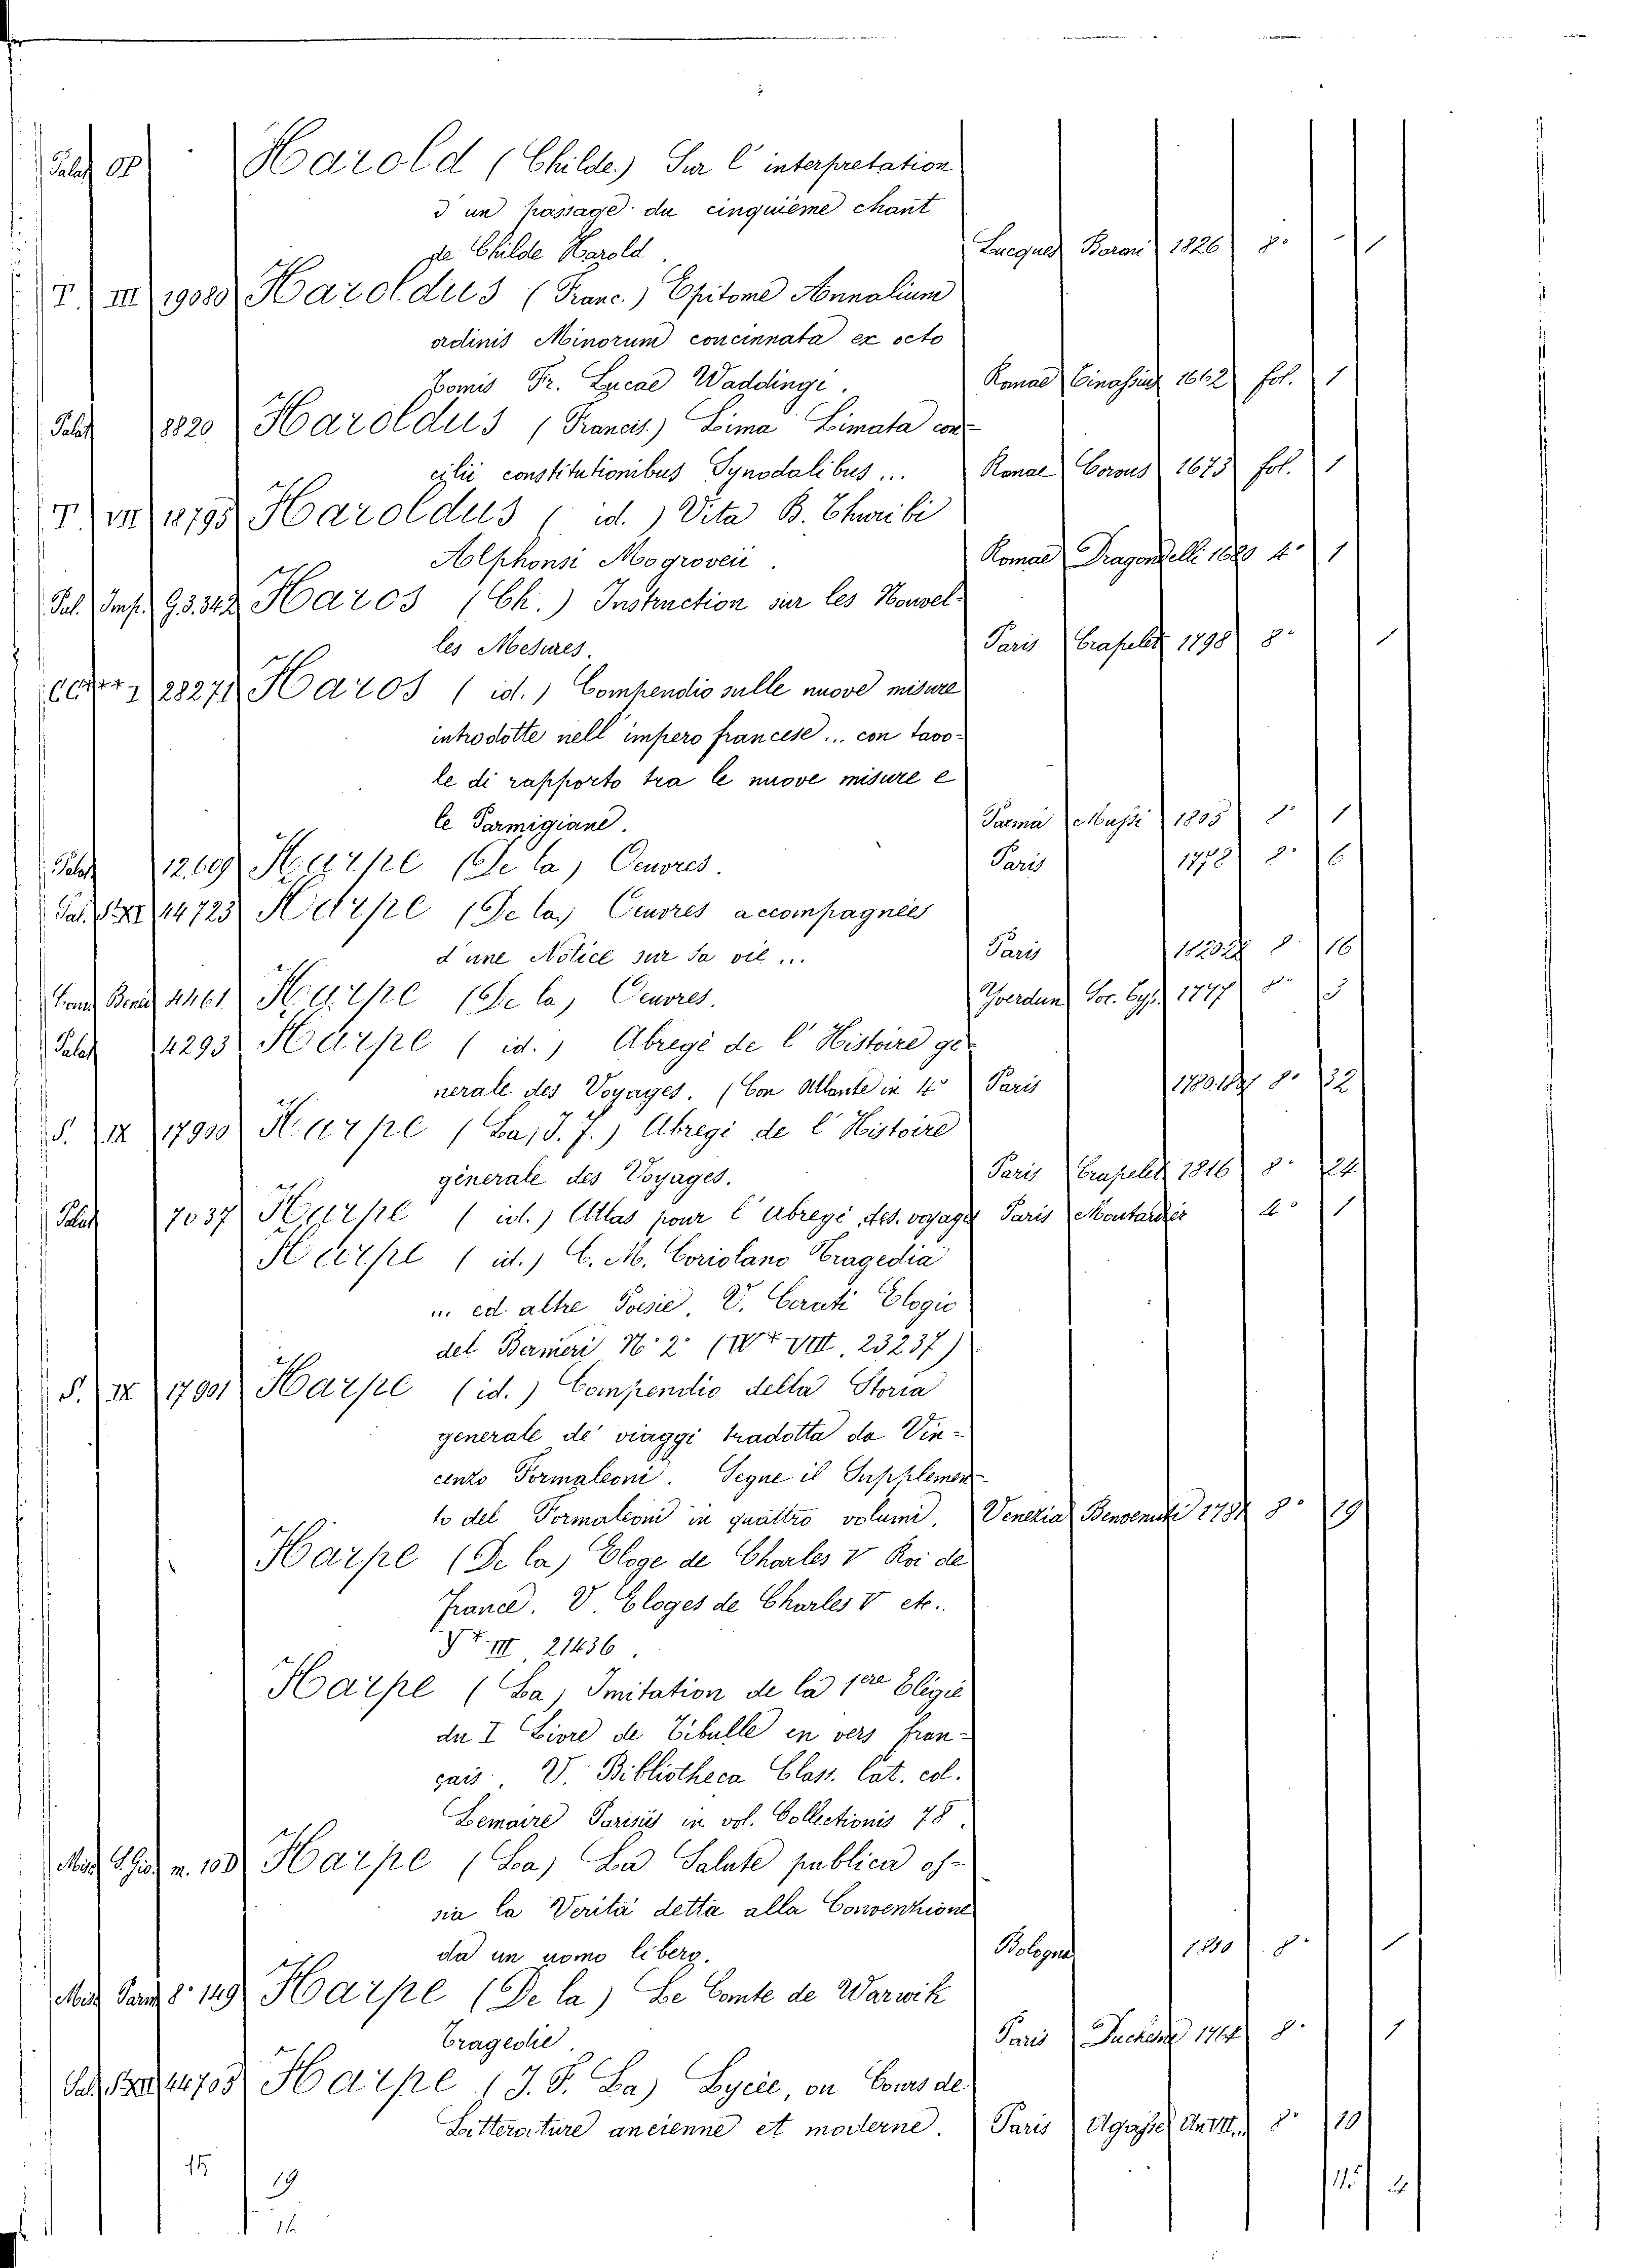 Palat Harold (Childe) Sur l'interpretation
d'un passage du cinquième chant
de Childe Harold. Lucques Baroni 1826 8° 1
T. III 19080 Haroldus (Franc.) Epitome Annalium
ordinis Minorum concinnata ex octo
tomis Fr. Lucae Waddingi. Romae 1662 fol. 1
Palat 8820 Haroldus (Francis.) Lima Limata con-
cilii constitutionibus Synodalibus... Romae Corvus 1673 fol. 1
T. VII 18795 Haroldus (id.) Vita B. Thuribi
Alphonsi Mogroveii. Romae Dragondelli 1680 4° 1
Pal. Imp. 93.342 Haros (Ch.) Instruction sur les Nouvel-
les Mesures. Paris Crapelet 1798 8° 1
28271 Haros (id.) Compendio sulle nuove misure
introdotte nell'impero francese... con tavo-
le di rapporto tra le nuove misure e
le Parmigiane. Parma Mussi 1805 8° 1
Palat 12609 Harpe (De la) Oeuvres. Paris 1778 8° 6
Pal. § XI 14723 Harpe (De la) Oeuvres accompagnées
d'une Notice sur sa vie... Paris 8° 16
4461 Harpe (De la) Oeuvres. Yverdun Soc. Typ. 1777 8° 3
Palat 4293 Harpe (id.) Abregé de l'Histoire ge-
nerale des Voyages. (Con Atlante in 4° Paris 8° 32
S. IX 17900 Harpe (La, J. F.) Abregé de l'Histoire
génerale des Voyages. Paris Crapelet 1816 8° 24
Palat 7037 Harpe (id.) Atlas pour l'Abregé des voyages Paris Moutardier 4° 1
Harpe (id.) C. M. Coriolano Tragedia
... ed altre Poesie. V. Cerati Elogio
del Bernieri N° 2° (VIII. 23237)
S. IX 17901 Harpe (id.) Compendio della Storia
generale de' viaggi tradotta da Vin-
cenzo Formaleoni. Segue il Supplemen-
to del Formaleoni in quattro volumi. Venezia 8° 19
Harpe (De la) Eloge de Charles V Roi de
France. V. Eloges de Charles V etc.
III. 21436.
Harpe (La) Imitation de la 1ere Eligie
du I Livre de Tibulle en vers fran-
çais. V. Bibliotheca Class. Lat. col.
Lemaire Parisiis in vol. Collectionis 78.
Harpe (La) La Salute publica os-
sia la Verità detta alla Convenzione
da un uomo libero. Bologna 8° 1
8° 149 Harpe (De la) Le Comte de Warwik
Tragedie. Paris 8° 1
14703 Harpe (J. F. La) Lycée, ou Cours de
Litterature ancienne et moderne. Paris Agasse An VII. 8° 19
15 19